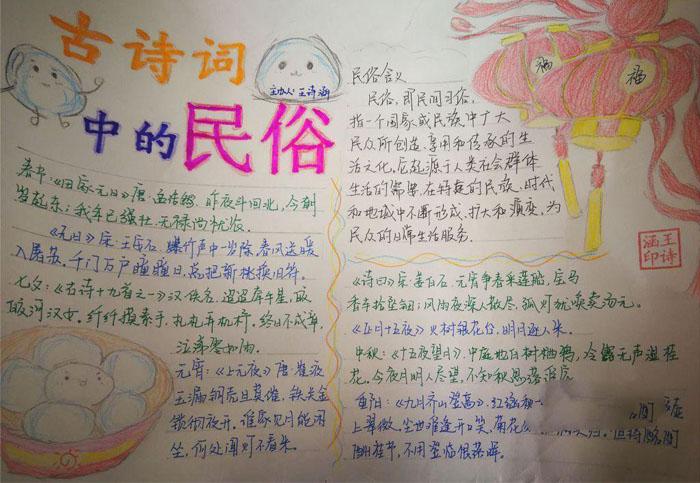 古诗词
中的民俗
主办人：王诗涵
福
福
民俗含义
民俗，即民间习俗，
指一个国家或民族中广大
民众所创造、享用和传承的生
活文化，它起源于人类社会群体
生活的需要，在特定的民族、时代
和地域中不断形成、扩大和演变，为
民众的日常生活服务。
王诗
涵印
春节：《田家元日》唐·孟浩然 昨夜斗回北，今朝
岁起东；我年已强壮，无禄尚忧农。
《元日》宋·王安石 爆竹声中一岁除，春风送暖
入屠苏。千门万户曈曈日，总把新桃换旧符。
七夕：《古诗十九首之一》汉·佚名 牵牛星，
河汉女。纤纤擢素手，札札弄机杼。终日不成章，
泣涕零如雨。
元宵：《上元夜》唐·崔液
玉漏铜壶且莫催，铁关金
锁彻夜开。谁家见月能闲
坐，何处闻灯不看来。
《诗曰》宋·姜白石 元宵争看采莲船，宝马
香车拾坠钿；风雨夜深人散尽，孤灯犹唤卖汤元。
《正月十五夜》火树银花合，明月逐人来。
中秋：《十五夜望月》中庭地白树栖鸦，冷露无声湿桂
花。今夜月明人尽望，不知秋思落谁家
重阳：《九月齐山登高》江涵秋
上翠微。尘世难逢开口笑，菊花
酩酊
酬佳节，不用登临恨落晖。